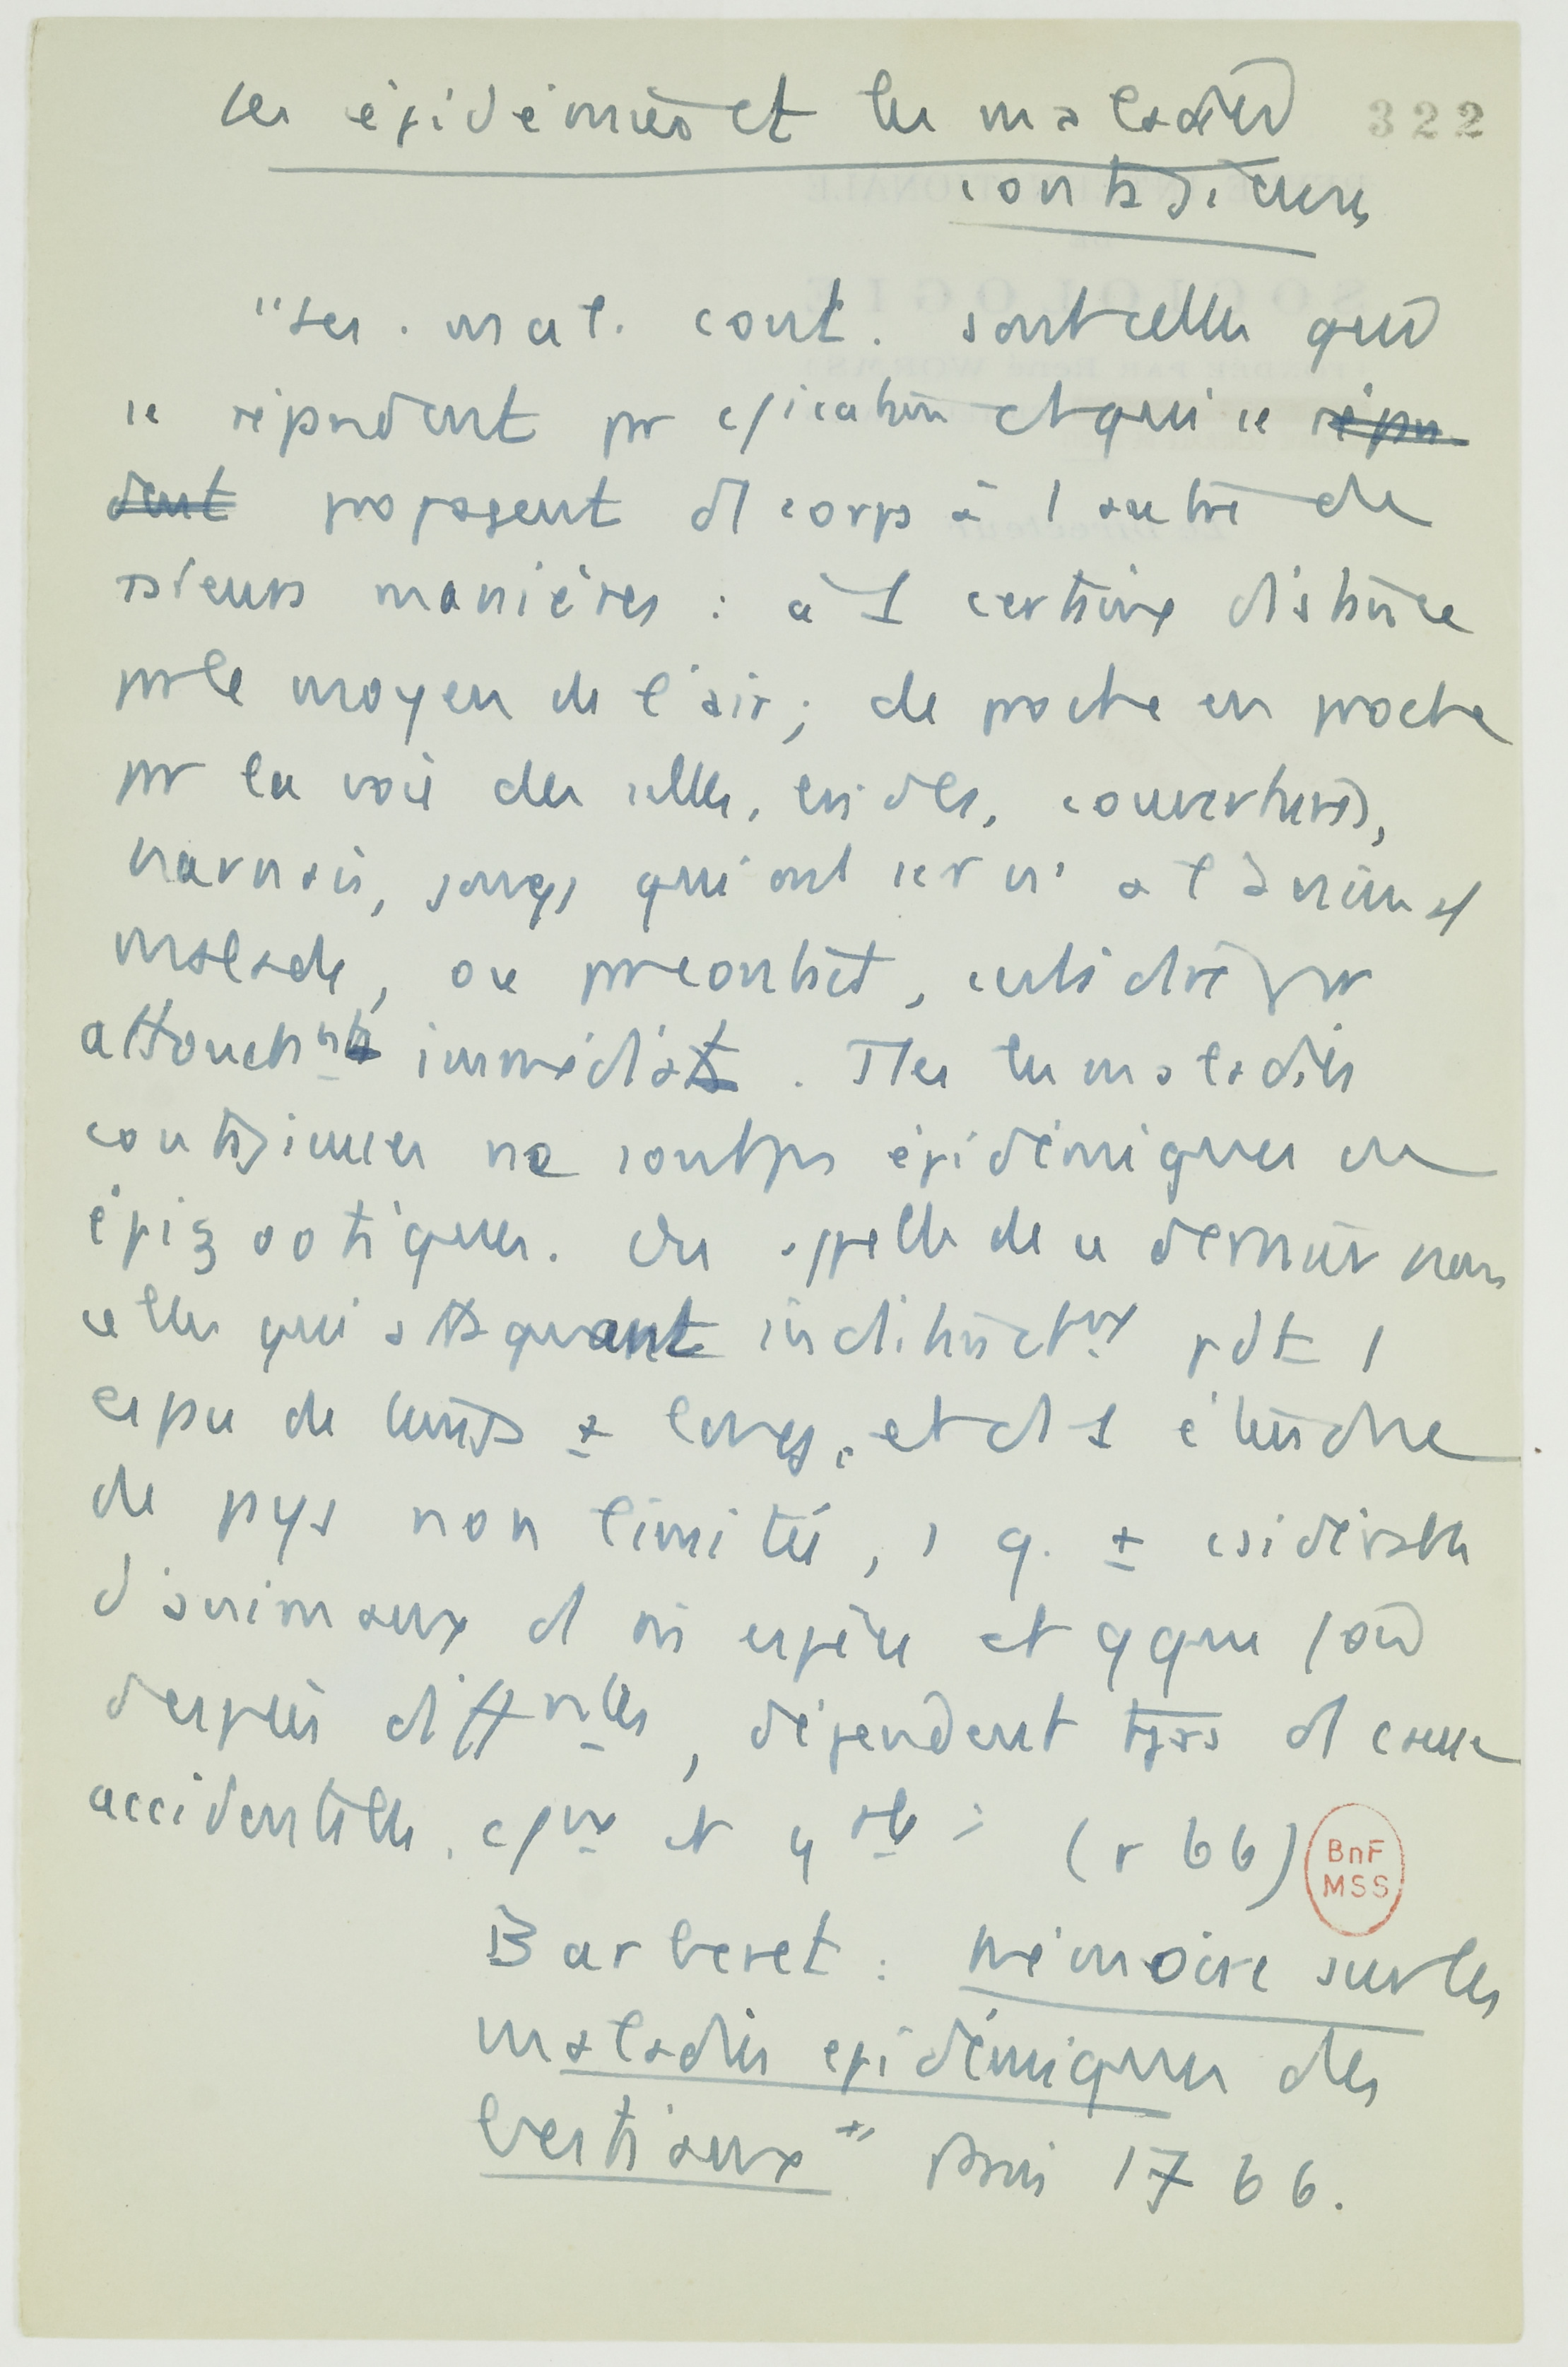 Les épidémies et les maladies 322
contagieuses
"Les. mal. cont. sont celles qui
se répandent pr c/ication et qui se répan-
dent propagent d1 corps à l'autre de
+sieurs manières : à 1 certaine distance
par le moyen de l'air ; de proche en proche
par la voie des selles, brides, couvertures,
harnais, qui ont servi à l'animal
malade, ou par contact, cad par
attouchnt immédiat. Ttes les maladies
contagieuses ne sont pas épidémiques ou
épizootiques. On appelle de ce dernier nom
celles qui attaquant indistinctnt pdt 1
espace de temps ± long, et ds 1 étendue
de pays non limitée, 1 q. ± csidérable
d'animaux d m espèce et qque fois
d'espèces difftes, dépendent tjrs d cause
accidentelle, et (p 66)
BnF
MSS
Barberet : Mémoire sur les
maladies épidémiques des
bestiaux" Paris 1766.